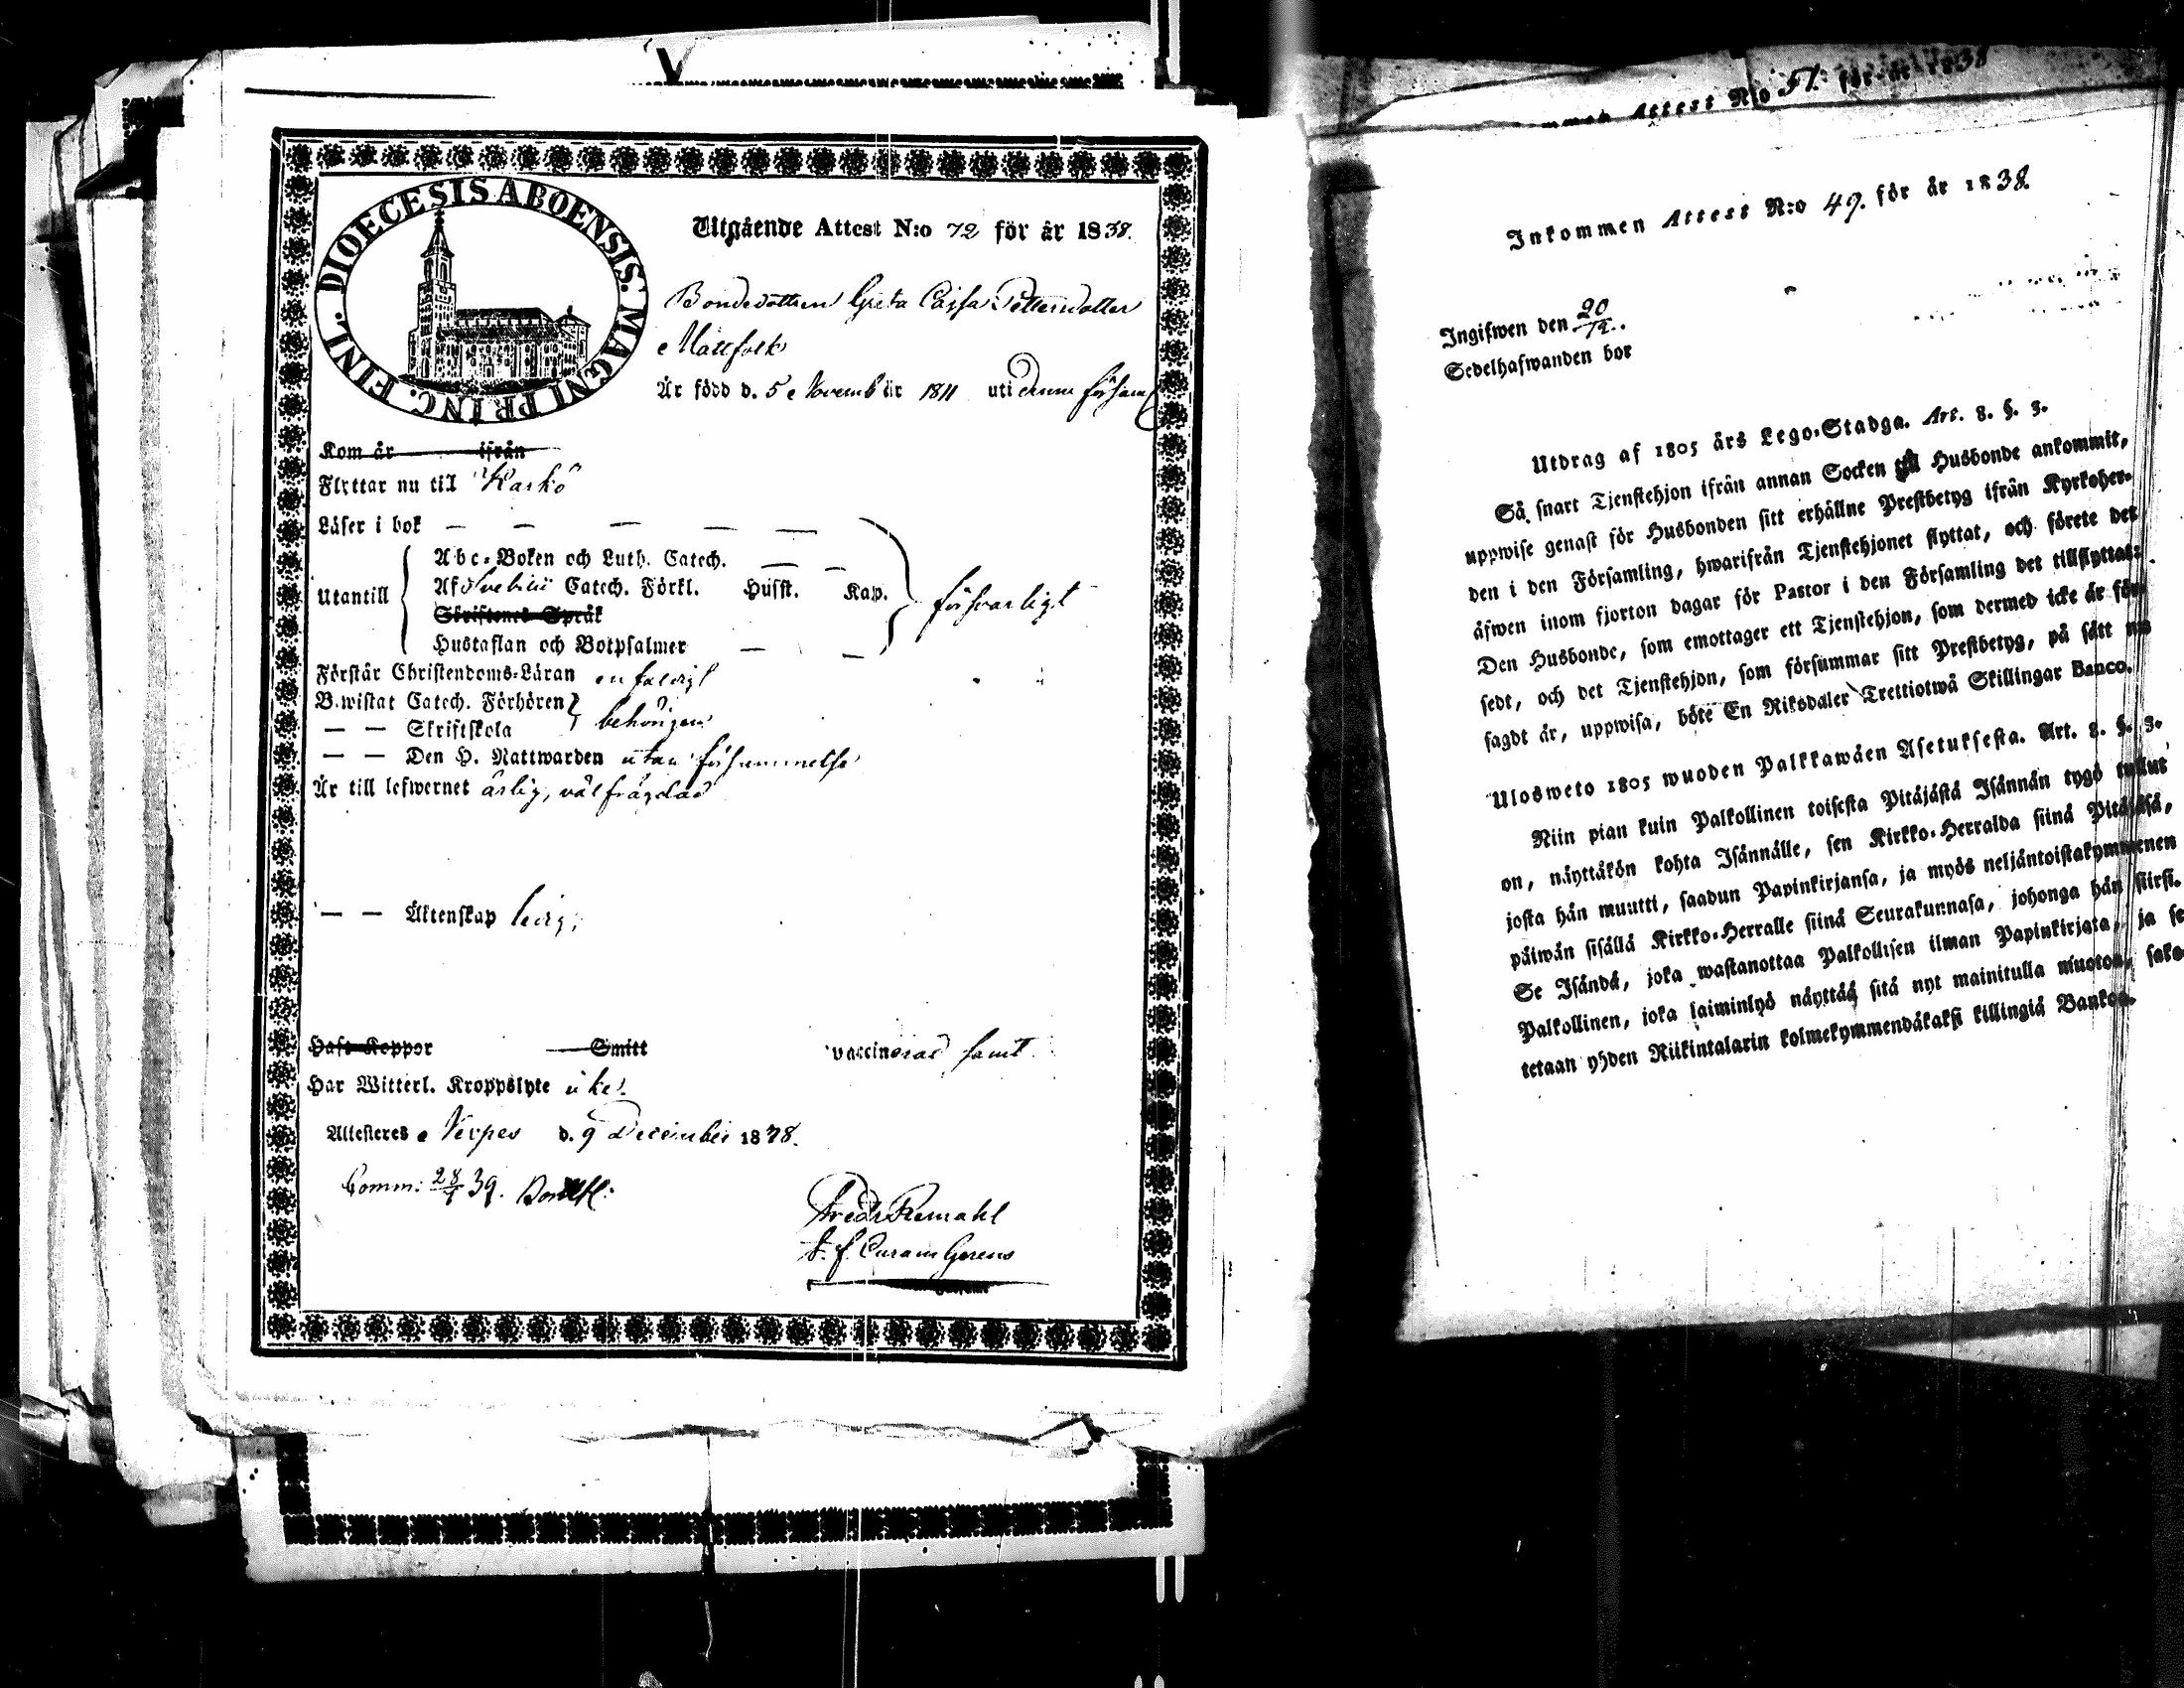 DIOECESIS ABOENSIS. MAGNI PRINC. FINL.
Utgående Attest N:o 72 för år 1838.
Bondedottren Greta Cajsa Pettersdotter
Mattfolk
Är född d. 5 November 1811 uti denna församl
Kom år ifrån
Flyttar nu till Kaskö
Läser i bok — — — — —
Abc-Boken och Luth. Catech. — —
Utantill Af Svebilii Catech. Förkl. Husst. Kap. försvarligt
Skriftenes Språk
Hustaflan och Botpsalmer — —
Förstår Christendoms-Läran enfaldigt
Bewistat Catech. Förhören
— — Skriftskola behörigen
— — Den H. Nattwarden utan försummelse
Är till lefwernet ärlig, välfrägdad
— — Äktenskap ledig;
Haft Koppor — Smitt vaccinerad samt
Har Witterl. Kroppslyte icke.
Attesteres Nerpes d. 9 December 1838.
Comm: 28/1 39.
Fredr Remahl
v. f. Curam Gerens
Inkommen Attest N:o 51. för år 1838
Inkommen Attest N:o 49. för år 1838.
Ingifwen den 20/12.
Sedelhafwanden bor
Utdrag af 1805 års Lego-Stadga. Art. 8. §. 3.
Så snart Tjenstehjon ifrån annan Socken till Husbonde ankommit,
uppwise genast för Husbonden sitt erhållne Prestbetyg ifrån Kyrkoher-
den i den Församling, hwarifrån Tjenstehjonet flyttat, och förete det
äfwen inom fjorton dagar för Pastor i den Församling det tillflyttat:
Den Husbonde, som emottager ett Tjenstehjon, som dermed icke är för-
sedt, och det Tjenstehjon, som försummar sitt Prestbetyg, på sätt nu
sagdt är, uppwisa, böte En Riksdaler Trettiotwå Skillingar Banco.
Ulosweto 1805 wuoden Palkkawäen Asetuksesta. Art. 8. §. 3.
Niin pian kuin Palkollinen toisesta Pitäjästä Isännän tygö tullut
on, näyttäkön kohta Isännälle, sen Kirkko-Herralda siinä Pitäjäsä,
josta hän muutti, saadun Papinkirjansa, ja myös neljäntoistakymmenen
päiwän sisällä Kirkko-Herralle siinä Seurakunnasa, johonga hän siirsi.
Se Isändä, joka wastanottaa Palkollisen ilman Papinkirjata, ja se
Palkollinen, joka laiminlyö näyttää sitä nyt mainitulla muoton, sako-
tetaan yhden Riikintalarin kolmekymmendäkaksi killingiä Bankoa.